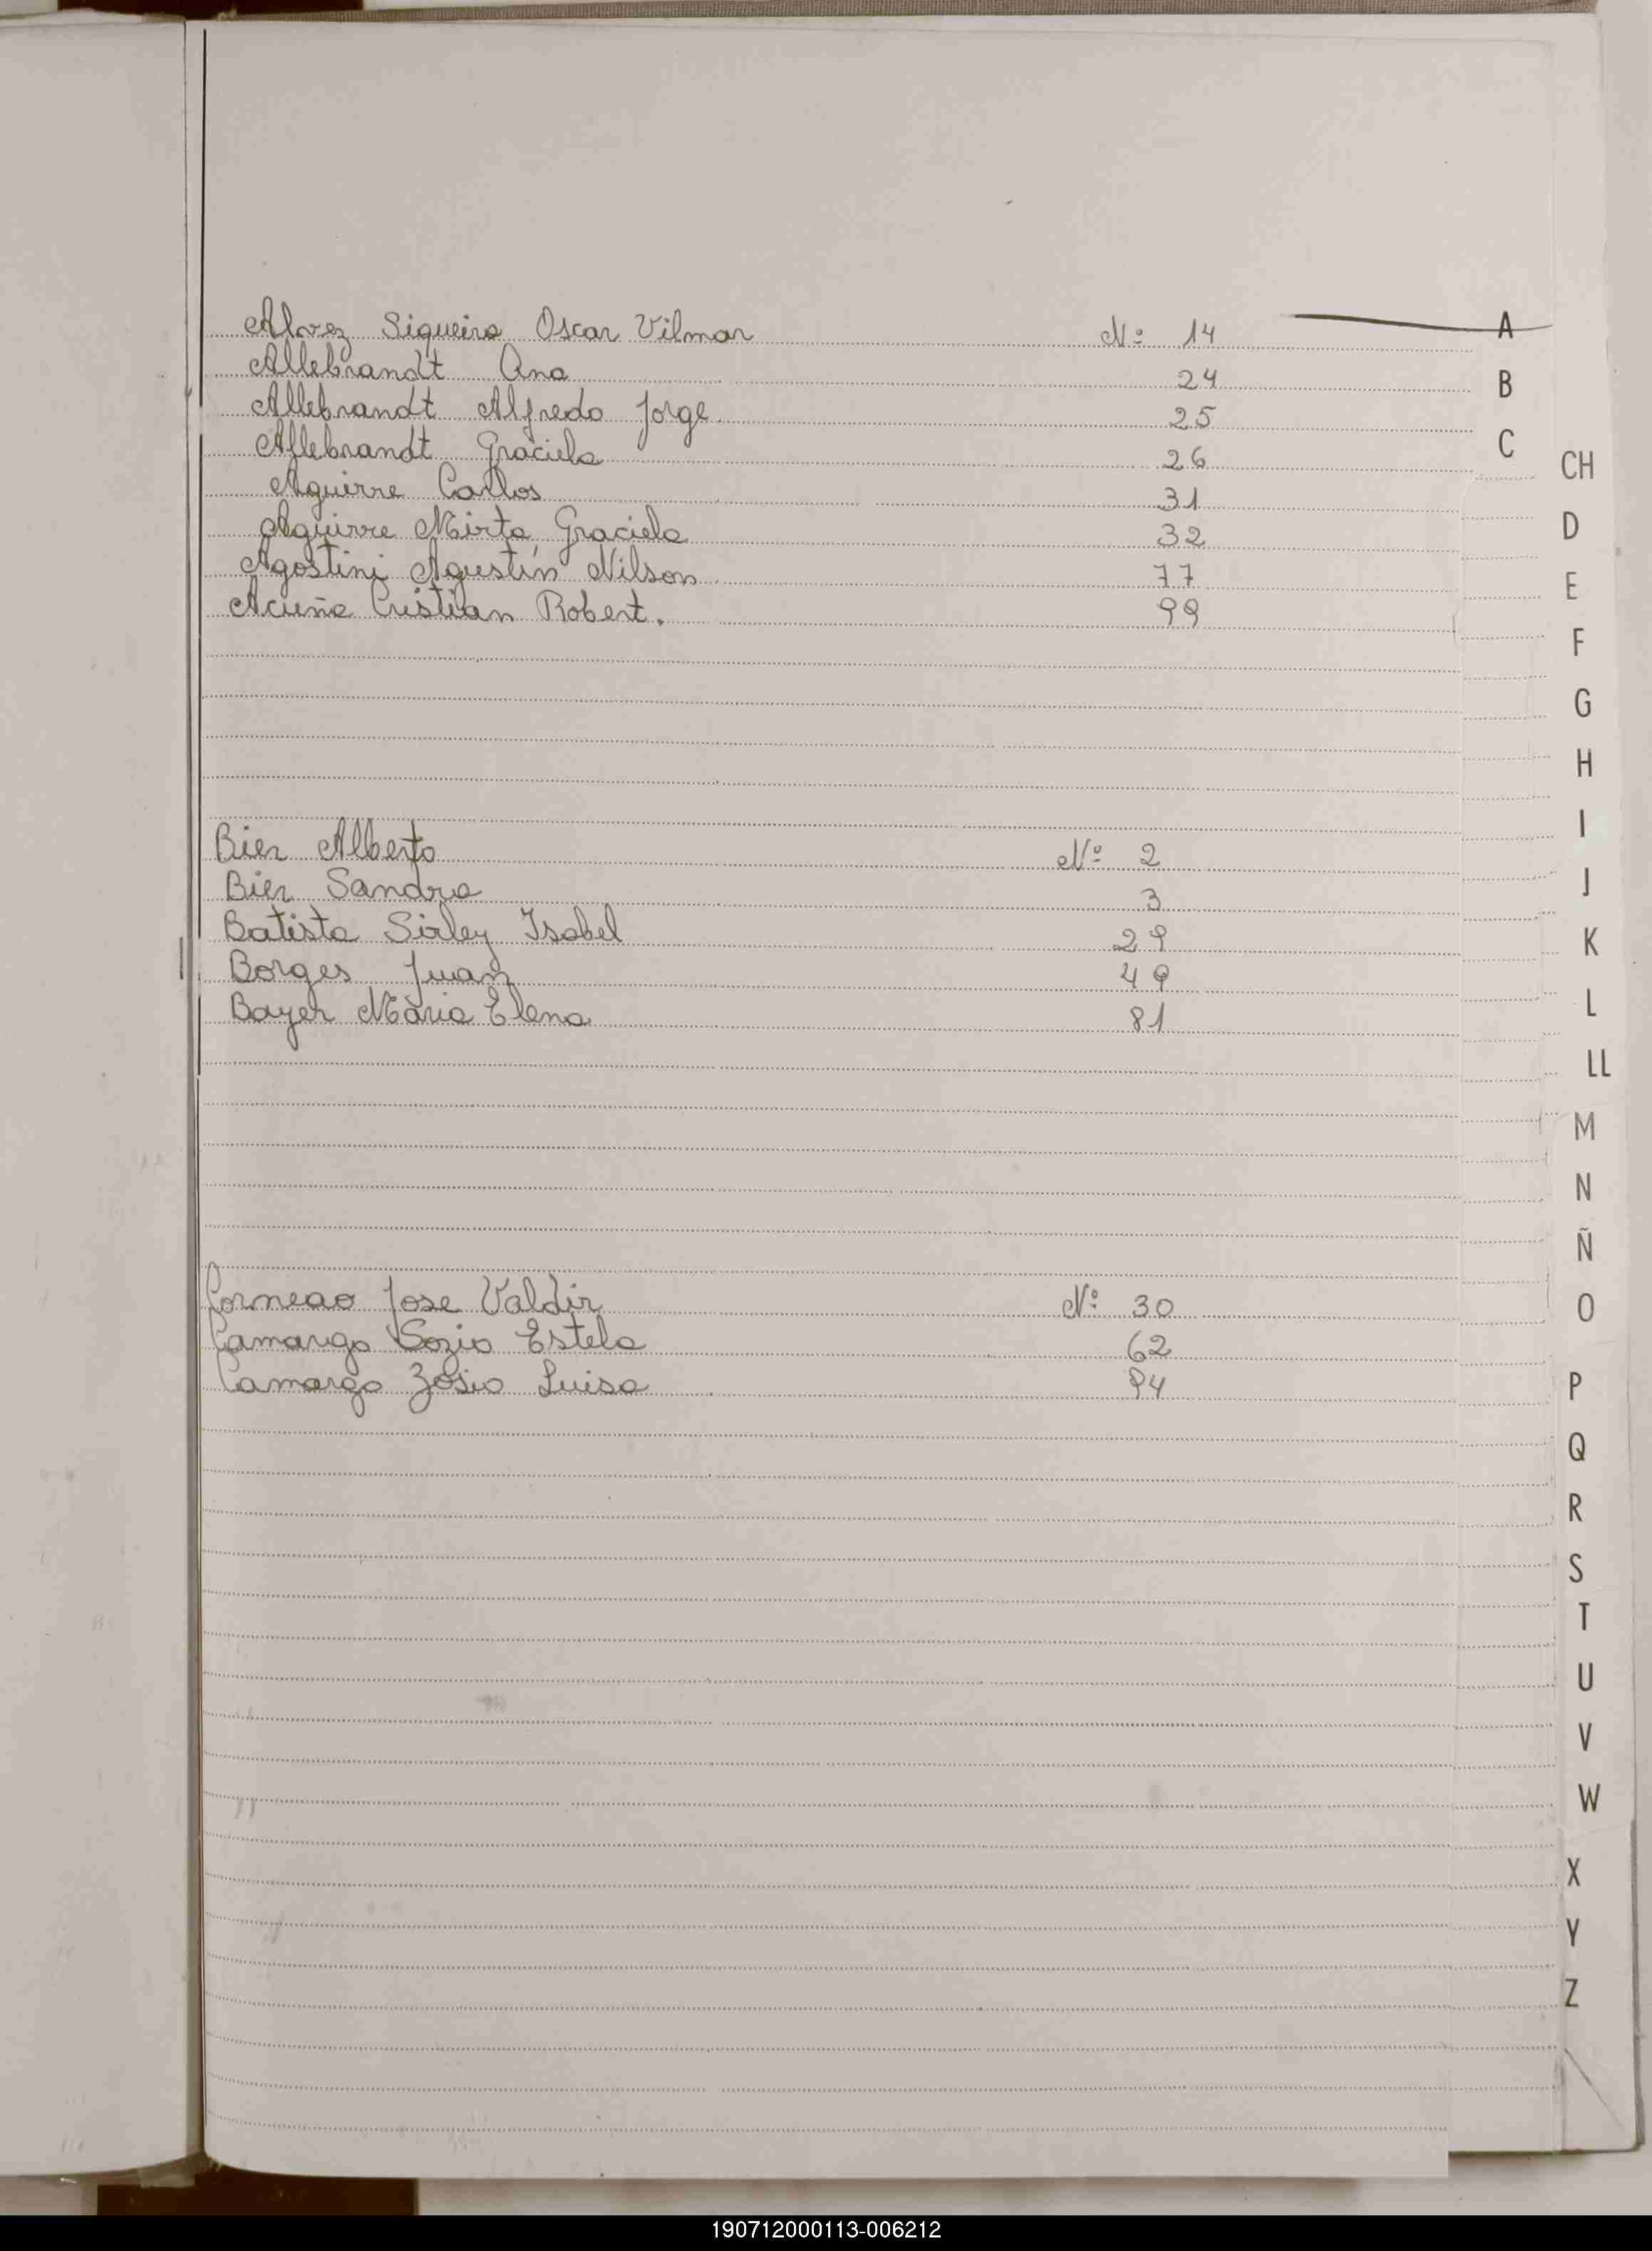 Alvez Siqueira Oscar Vilmar Nº 14
Allebrandt Ana 24
Allebrandt Alfredo Jorge 25
Allebrandt Graciela 26
Aguirre Carlos 31
Aguirre Mirta Graciela 32
Agostini Agustín Nilson 77
Acuña Cristian Robert. 99
Bier Alberto Nº 2
Bier Sandra 3
Batista Sirley Isabel 29
Borges Juan 49
Bayer Maria Elena 81
Corneao Jose Valdir Nº 30
Camargo Sozio Estela 62
Camargo Zosio Luisa 94
A
B
C
CH
D
E
F
G
H
I
J
K
L
LL
M
N
Ñ
O
P
Q
R
S
T
U
V
W
X
Y
Z
190712000113-006212